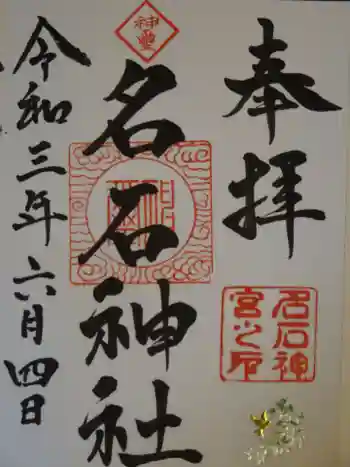 奉拝
名石神社
令和三年六月四日
神霊
名石神
宮之印